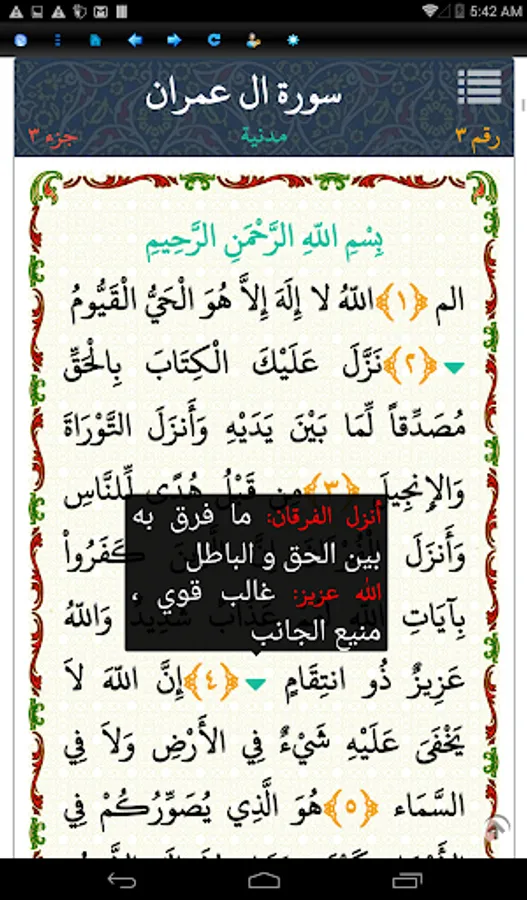 5:42 AM
سورة ال عمران
رقم ٣
مدنية
جزء ٣
بِسْمِ اللّهِ الرَّحْمَنِ الرَّحِيمِ
الم ﴿١﴾ اللّهُ لا إِلَهَ إِلاَّ هُوَ الْحَيُّ الْقَيُّومُ
﴿٢﴾ نَزَّلَ عَلَيْكَ الْكِتَابَ بِالْحَقِّ
مُصَدِّقاً لِّمَا بَيْنَ يَدَيْهِ وَأَنزَلَ التَّوْرَاةَ
وَالإِنجِيلَ ﴿٣﴾ مِن قَبْلُ هُدًى لِّلنَّاسِ
وَأَنزَلَ كَفَرُواْ
بِآيَاتِ اللّهِ لَهُمْ عَذَابٌ شَدِيدٌ وَاللّهُ
أنزل الفرقان: ما فرق به
بين الحق و الباطل
الله عزيز: غالب قوي ،
منيع الجانب
عَزِيزٌ ذُو انتِقَامٍ ﴿٤﴾ إِنَّ اللّهَ لاَ
يَخْفَىَ عَلَيْهِ شَيْءٌ فِي الأَرْضِ وَلاَ فِي
السَّمَاء ﴿٥﴾ هُوَ الَّذِي يُصَوِّرُكُمْ فِي